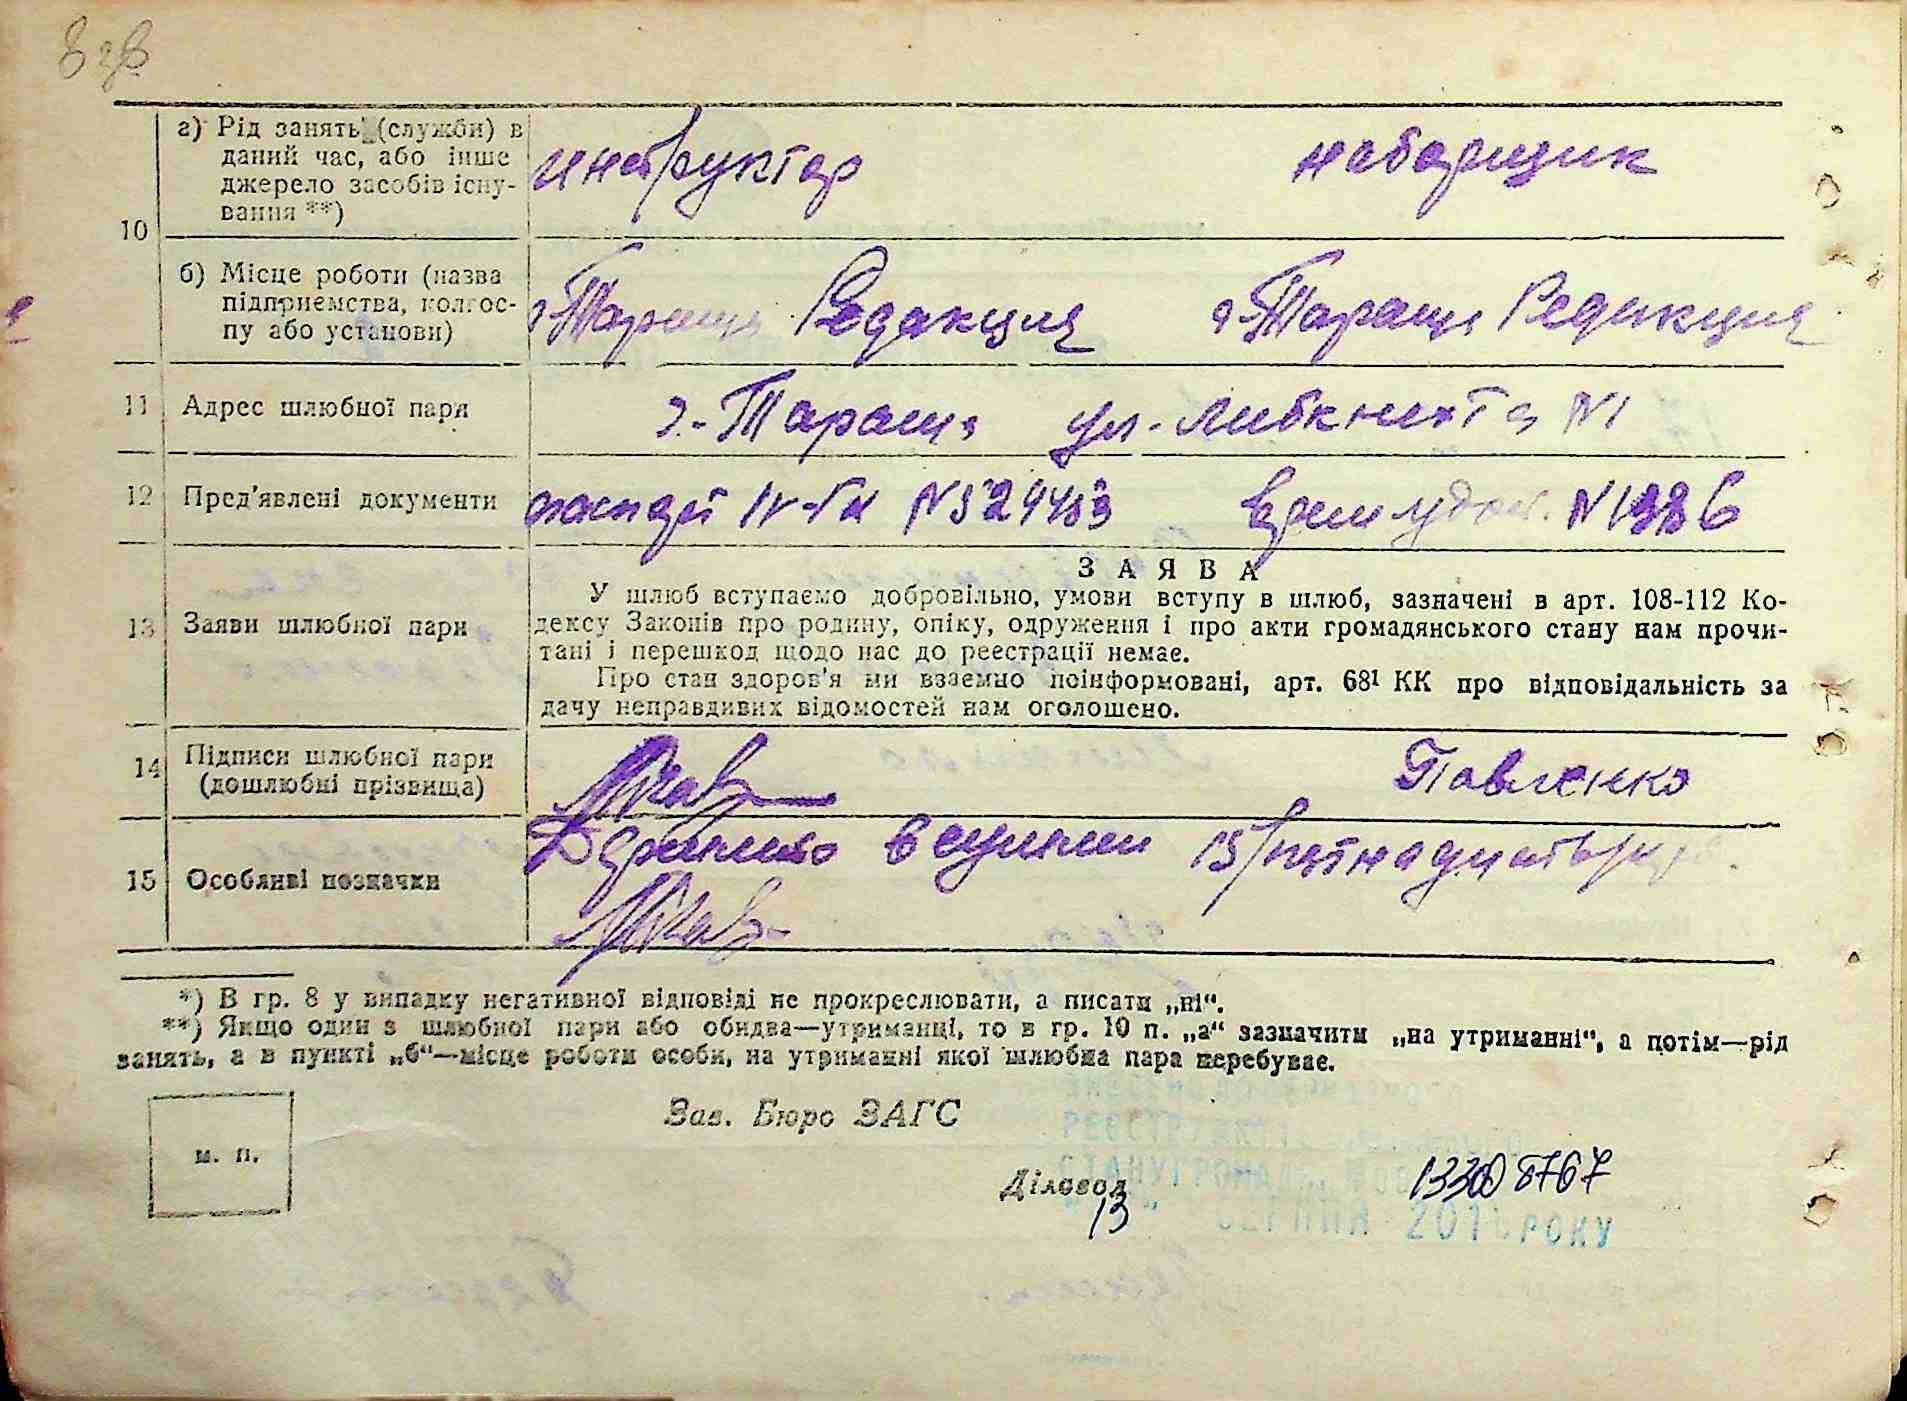 8 зв
а) Рід занять (служби) в даний час, або інше джерело засобів існування **)
инструктор
наборщик
10
б) Місце роботи (назва підприємства, колгоспу або установи)
г. Тараща Редакция
г. Тараща Редакция
11 Адрес шлюбної пари
г. Тараща ул. Либкнехта N1
12 Пред'явлені документи
паспорт IV-ГЦ
N1386
13 Заяви шлюбної пари
ЗАЯВА
У шлюб вступаємо добровільно, умови вступу в шлюб, зазначені в арт. 108-112 Ко-
дексу Законів про родину, опіку, одруження і про акти громадянського стану нам прочи-
тані і перешкод щодо нас до реєстрації немає.
Про стан здоров'я ми взаємно поінформовані, арт. 68¹ КК про відповідальність за
дачу неправдивих відомостей нам оголошено.
14 Підписи шлюбної пари
(дошлюбні прізвища)
Павленко
15 Особливі позначки
в сумми 15/пятнадцать/
*) В гр. 8 у випадку негативної відповіді не прокреслювати, а писати „ні“.
**) Якщо один з шлюбної пари або обидва—утриманці, то в гр. 10 п. „а“ зазначити „на утриманні“, а потім—рід
занять, а в пункті „б“—місце роботи особи, на утриманні якої шлюбна пара перебуває.
м. п.
Зав. Бюро ЗАГС
Діловод
13
СЕРПНЯ РОКУ